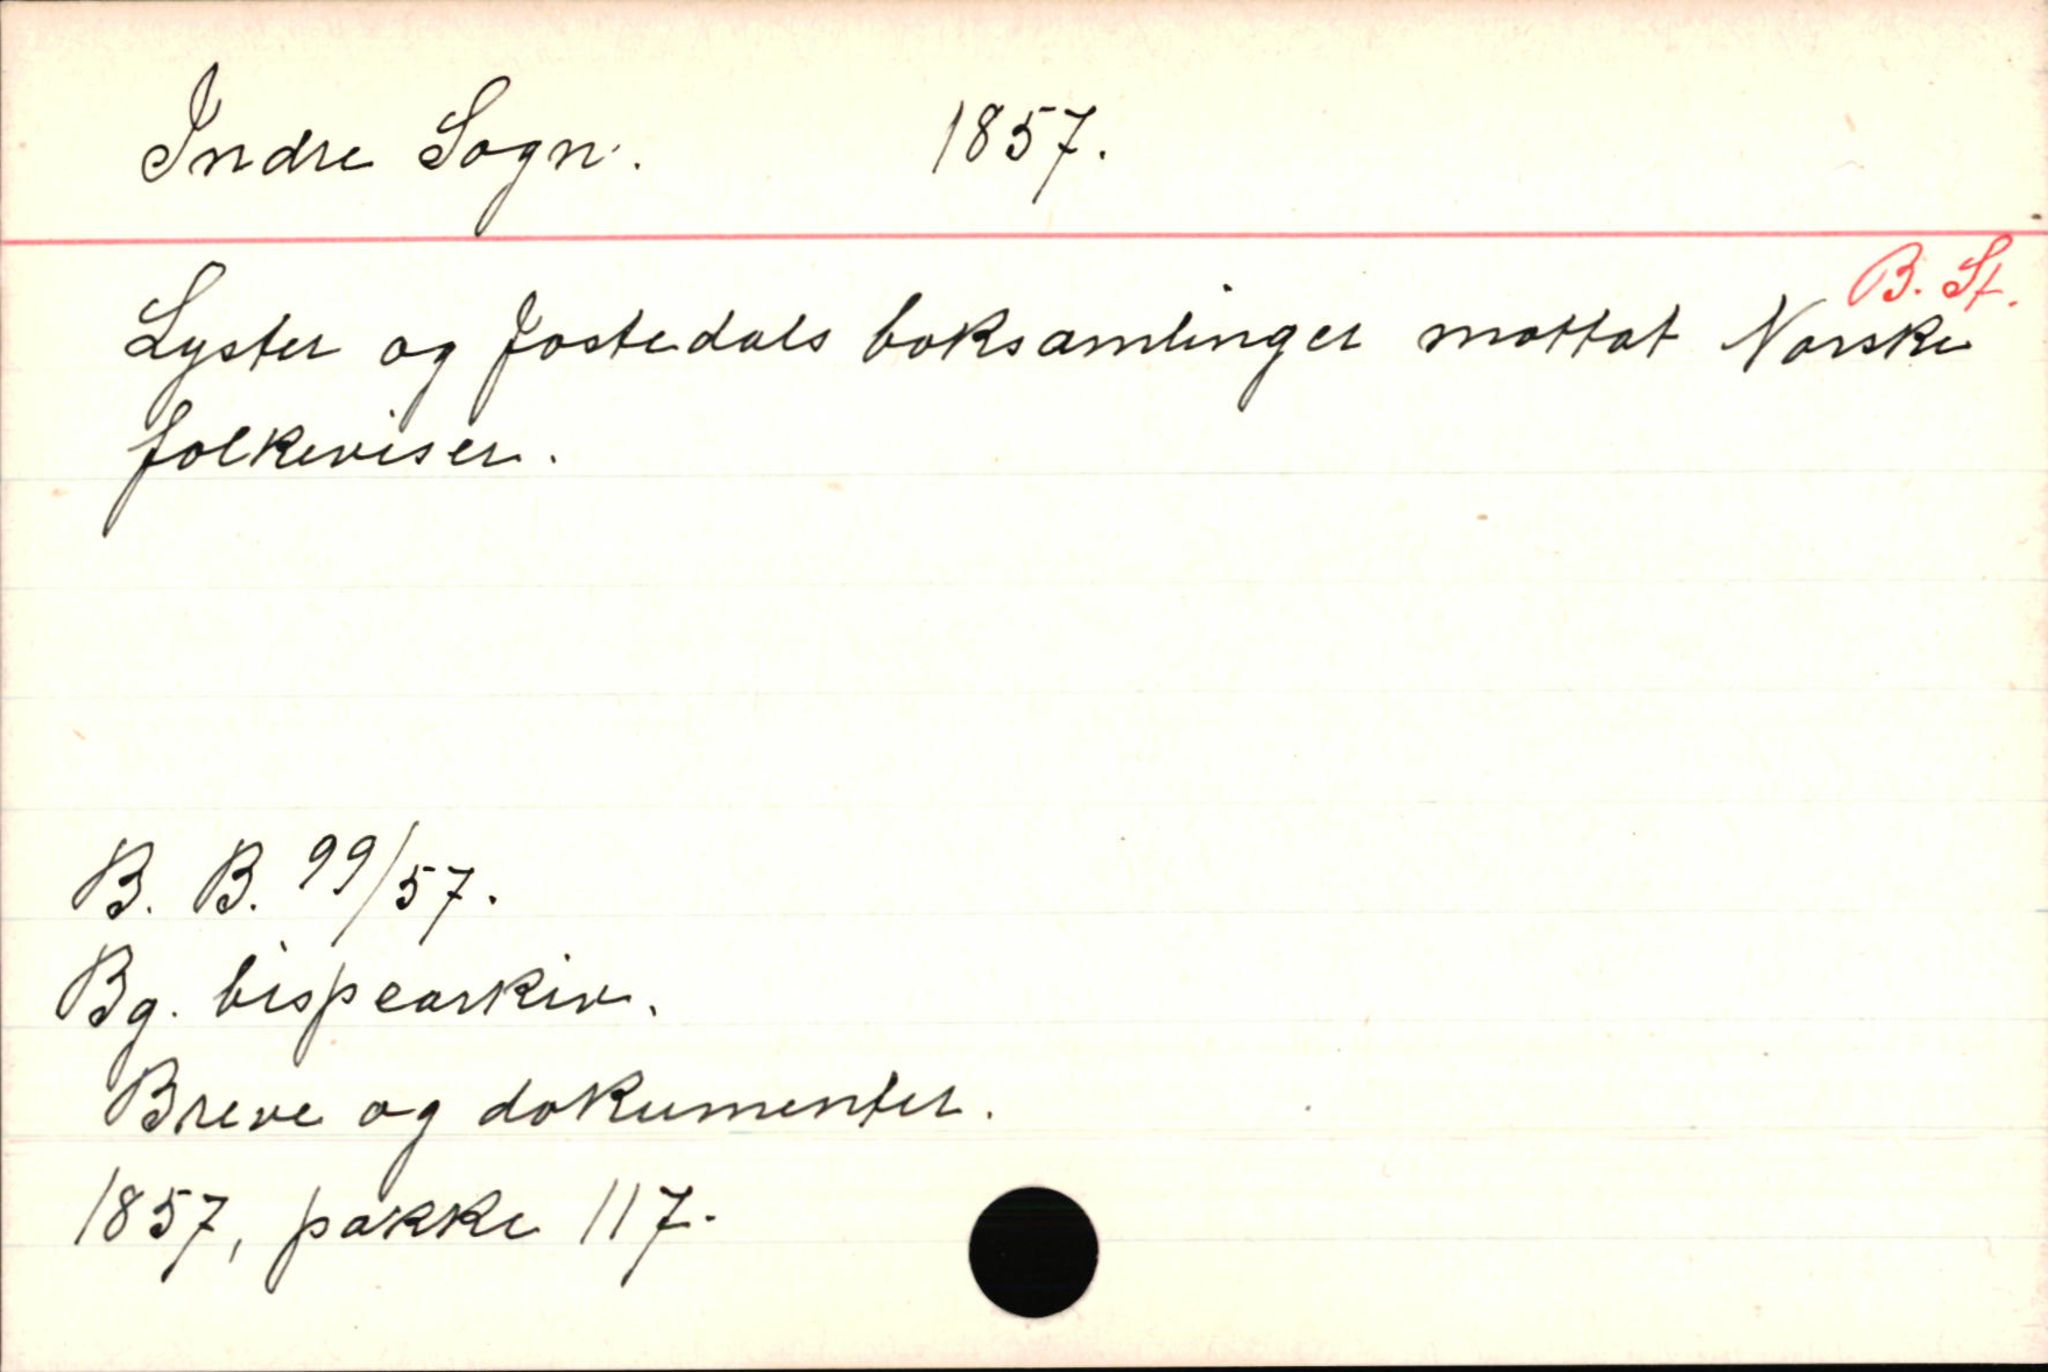 Indre Sogn. 1857.
B. St.
Lyster og Jostedals boksamlinger mottat Norske
folkeviser.
B. B. 99/57.
Bg. bispearkiv.
Breve og dokumenter.
1857, pakke 117.